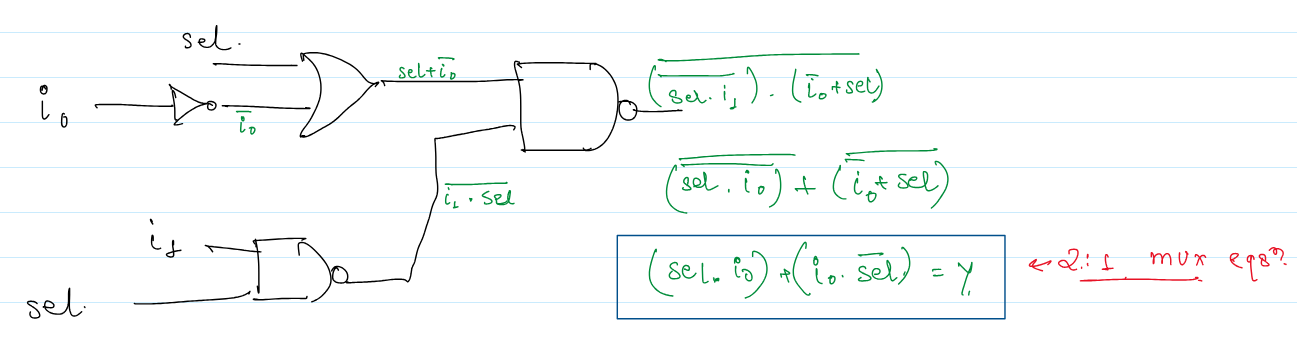 sel.
i₀
i̅₀
sel+i̅₀
\overline{(\overline{sel. i₁}) . (i̅₀+sel)}
i₁
sel.
\overline{i₁ . sel}
(\overline{\overline{sel . i₀}}) + (\overline{i̅₀+ sel})
(sel. i₀) + (i₀. \overline{sel}) = Y.
← 2:1 mux eqsⁿ.